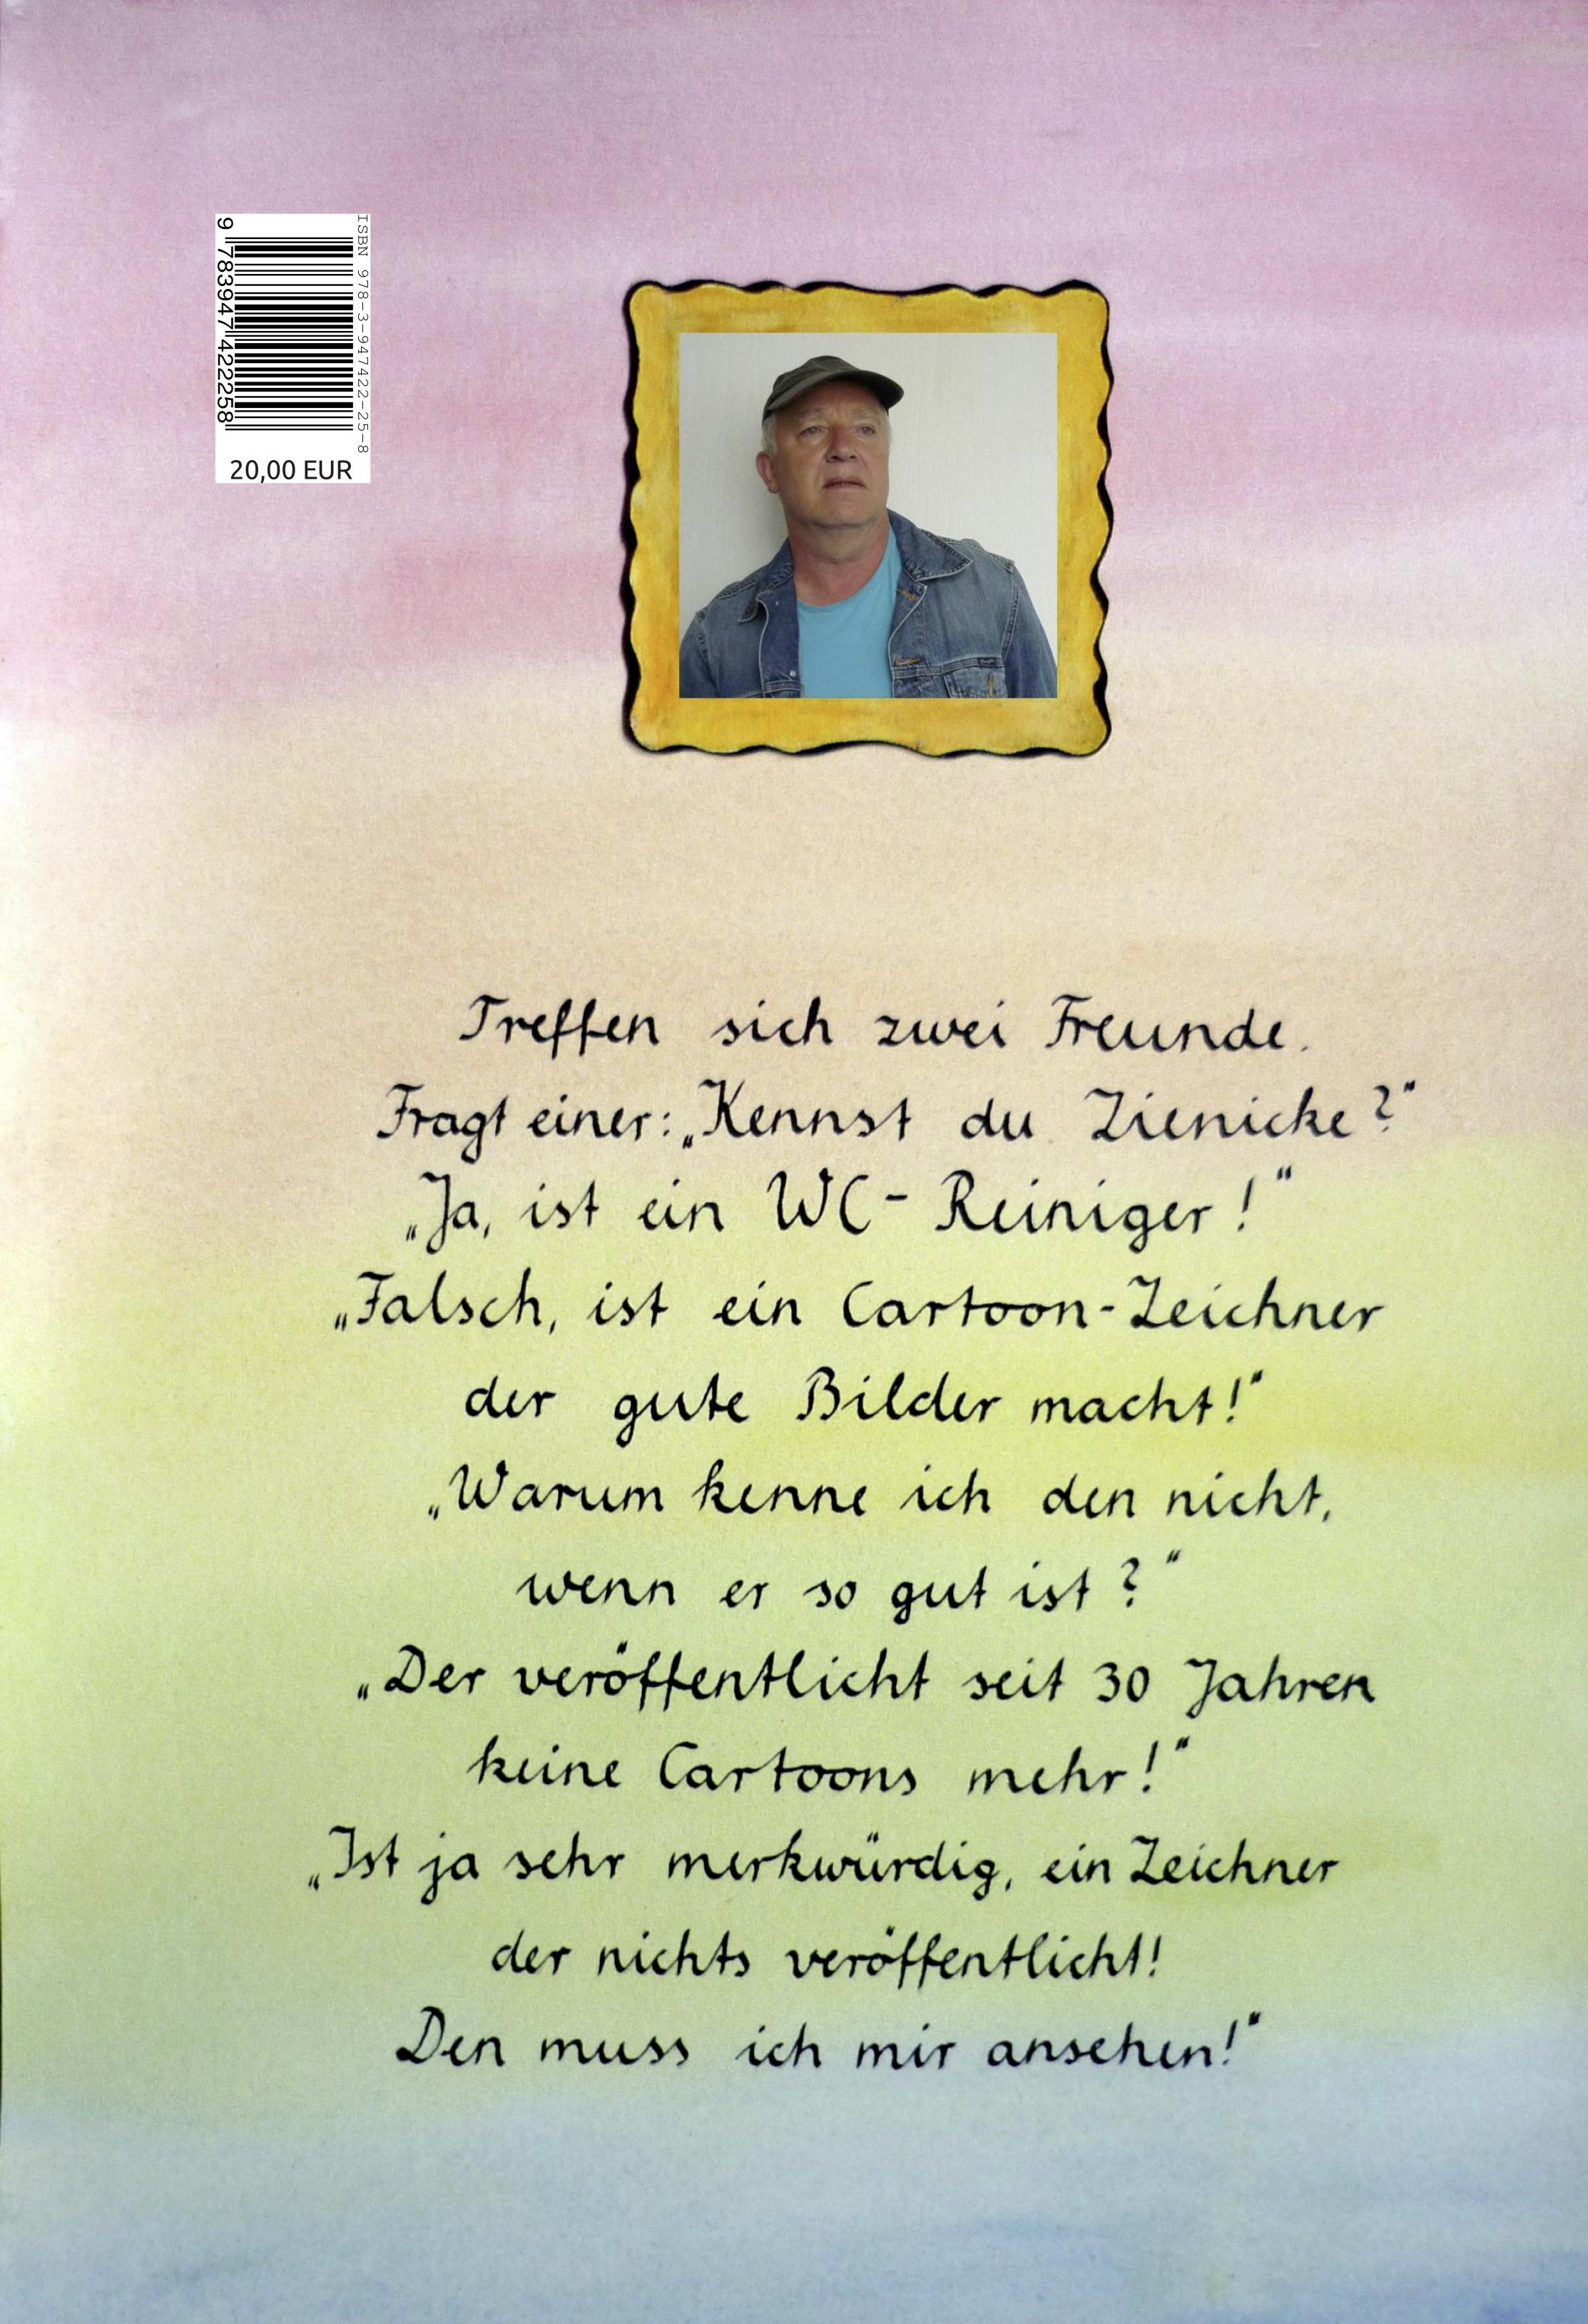 ISBN 978-3-947422-25-8
9 783947 422258
20,00 EUR
Treffen sich zwei Freunde.
Fragt einer: „Kennst du Zienicke?"
„Ja, ist ein WC-Reiniger!"
„Falsch, ist ein Cartoon-Zeichner
der gute Bilder macht!"
„Warum kenne ich den nicht,
wenn er so gut ist?"
„Der veröffentlicht seit 30 Jahren
keine Cartoons mehr!"
„Ist ja sehr merkwürdig, ein Zeichner
der nichts veröffentlicht!
Den muss ich mir ansehen!"